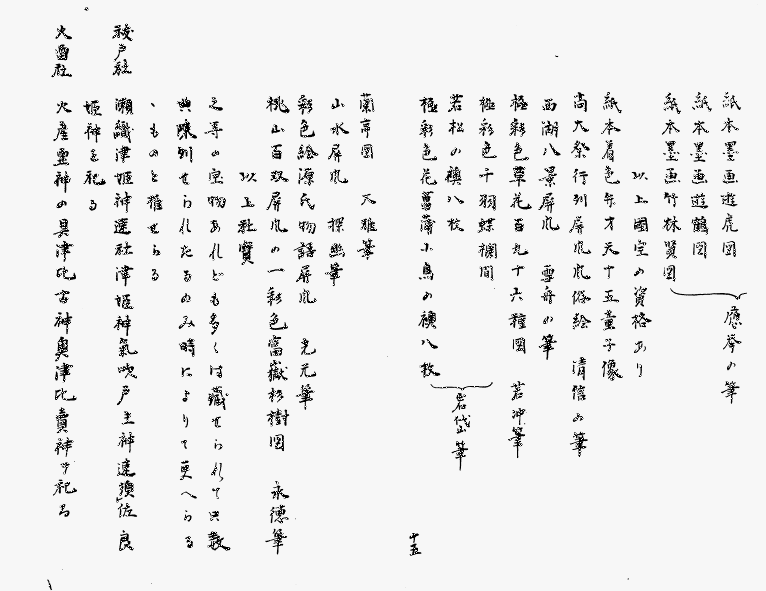 紙本墨画遊虎図
紙本墨画遊鶴図
紙本墨画竹林賢図
應挙の筆
以上國宝の資格あり
紙本着色弁才天十五童子像
尚大祭行列屏風風俗絵 清信の筆
西湖八景屏風 雪舟の筆
極彩色草花百九十六種図 若冲筆
極彩色千羽蝶襖間
若松の襖八枚
極彩色花菖蒲小鳥の襖八枚
岩岱筆
十五
蘭亭図 大雅筆
山水屏風 探幽筆
彩色絵源氏物語屏風 光元筆
桃山百双屏風の一彩色富嶽杉樹図 永徳筆
以上社寶
之等の宝物あれども多くは蔵せられて只数
典陳列せられたるのみ時によりて更へらる
、ものと推せらる
祓戸社 瀬織津姫神速社津姫神氣吹戸主神速須佐良
姫神を祀る
火酒社 火産霊神の具津比古神奥津比賣神ヲ祀る